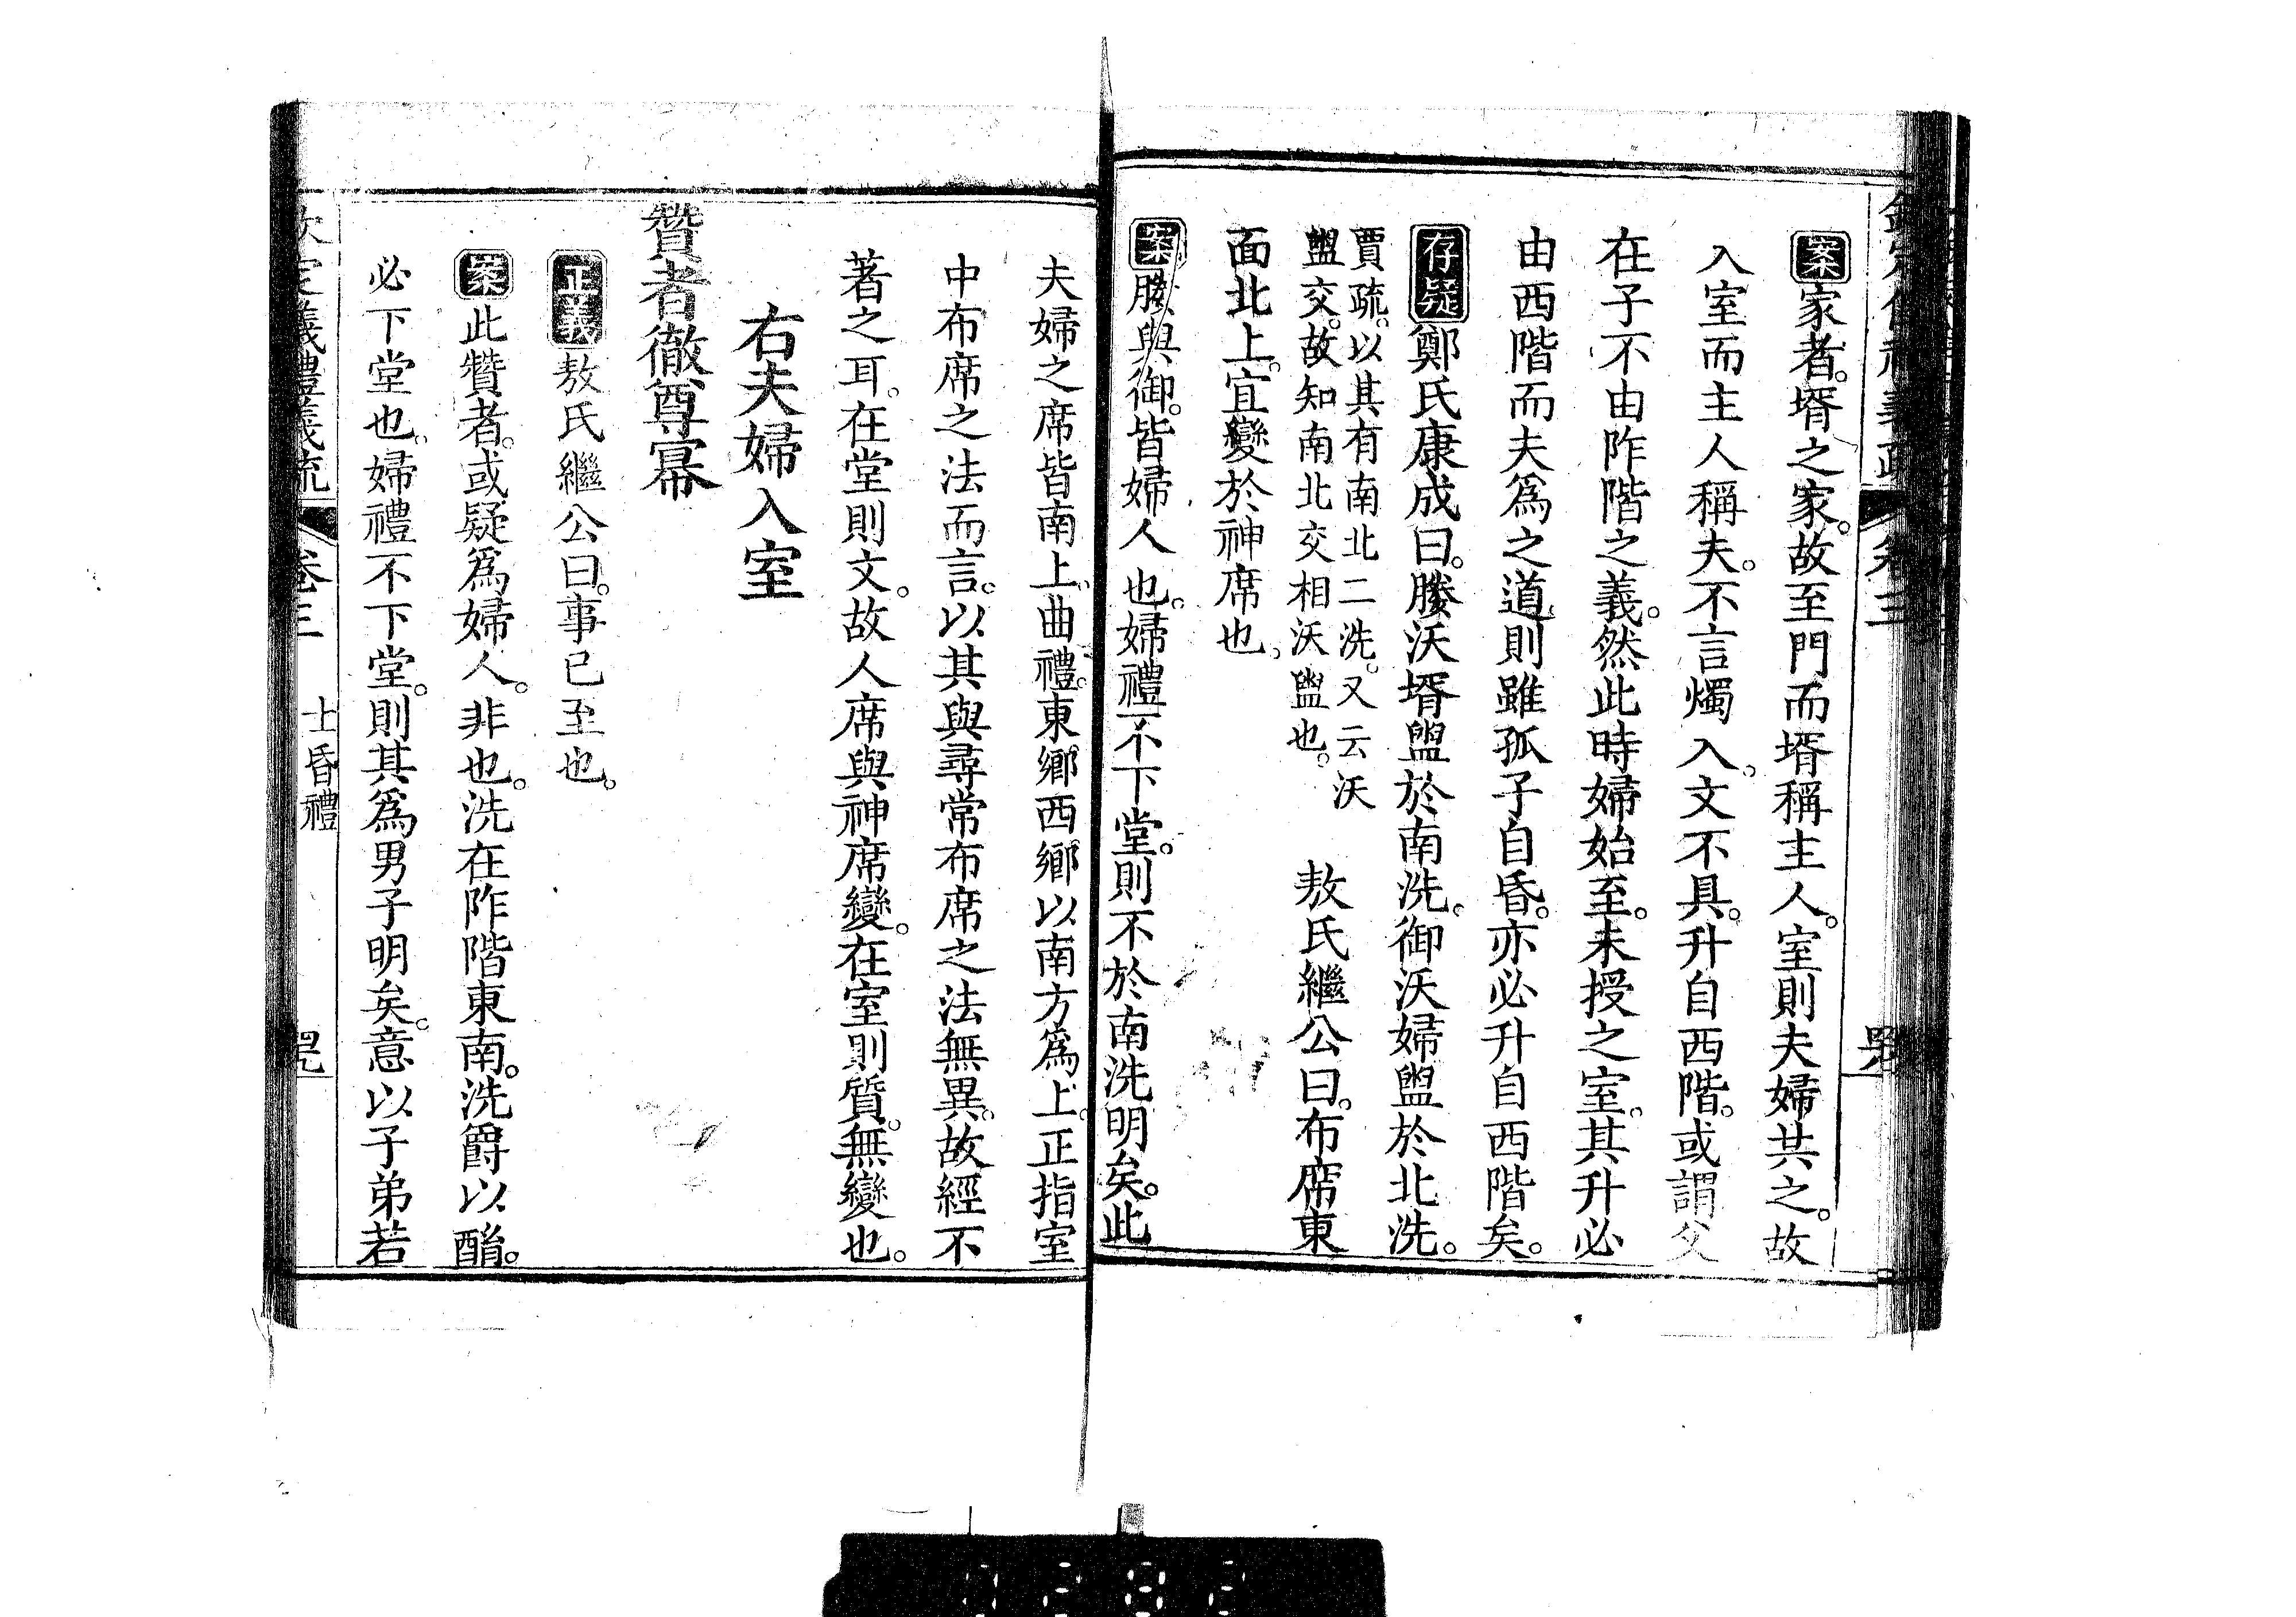 案家者。壻之家。故至門而壻稱主人。室則夫婦共之。故
入室而主人稱夫。不言燭入。文不具。升自西階。或謂父
在子不由阼階之義。然此時婦始至。未授之室。其升必
由西階而夫爲之道則雖孤子自昏。亦必升自西階矣。
存疑鄭氏康成曰。媵沃壻盥於南洗。御沃婦盥於北洗。
賈疏。以其有南北二洗。又云沃
盥交。故知南北交相沃盥也。
敖氏繼公曰。布席東
面北上。宜變於神席也。
案媵與御。皆婦人也。婦禮不下堂。則不於南洗明矣。此
夫婦之席皆南上。曲禮。東鄉西鄉以南方爲上。正指室
中布席之法而言。以其與尋常布席之法無異。故經不
著之耳。在堂則文。故人席與神席變。在室則質。無變也。
右夫婦入室
贊者徹尊冪
正義敖氏繼公曰。事已至也。
案此贊者。或疑爲婦人。非也。洗在阼階東南。洗爵以酳。
必下堂也。婦禮不下堂。則其爲男子明矣。意以子弟若
義禮義疏
卷三
士昏禮